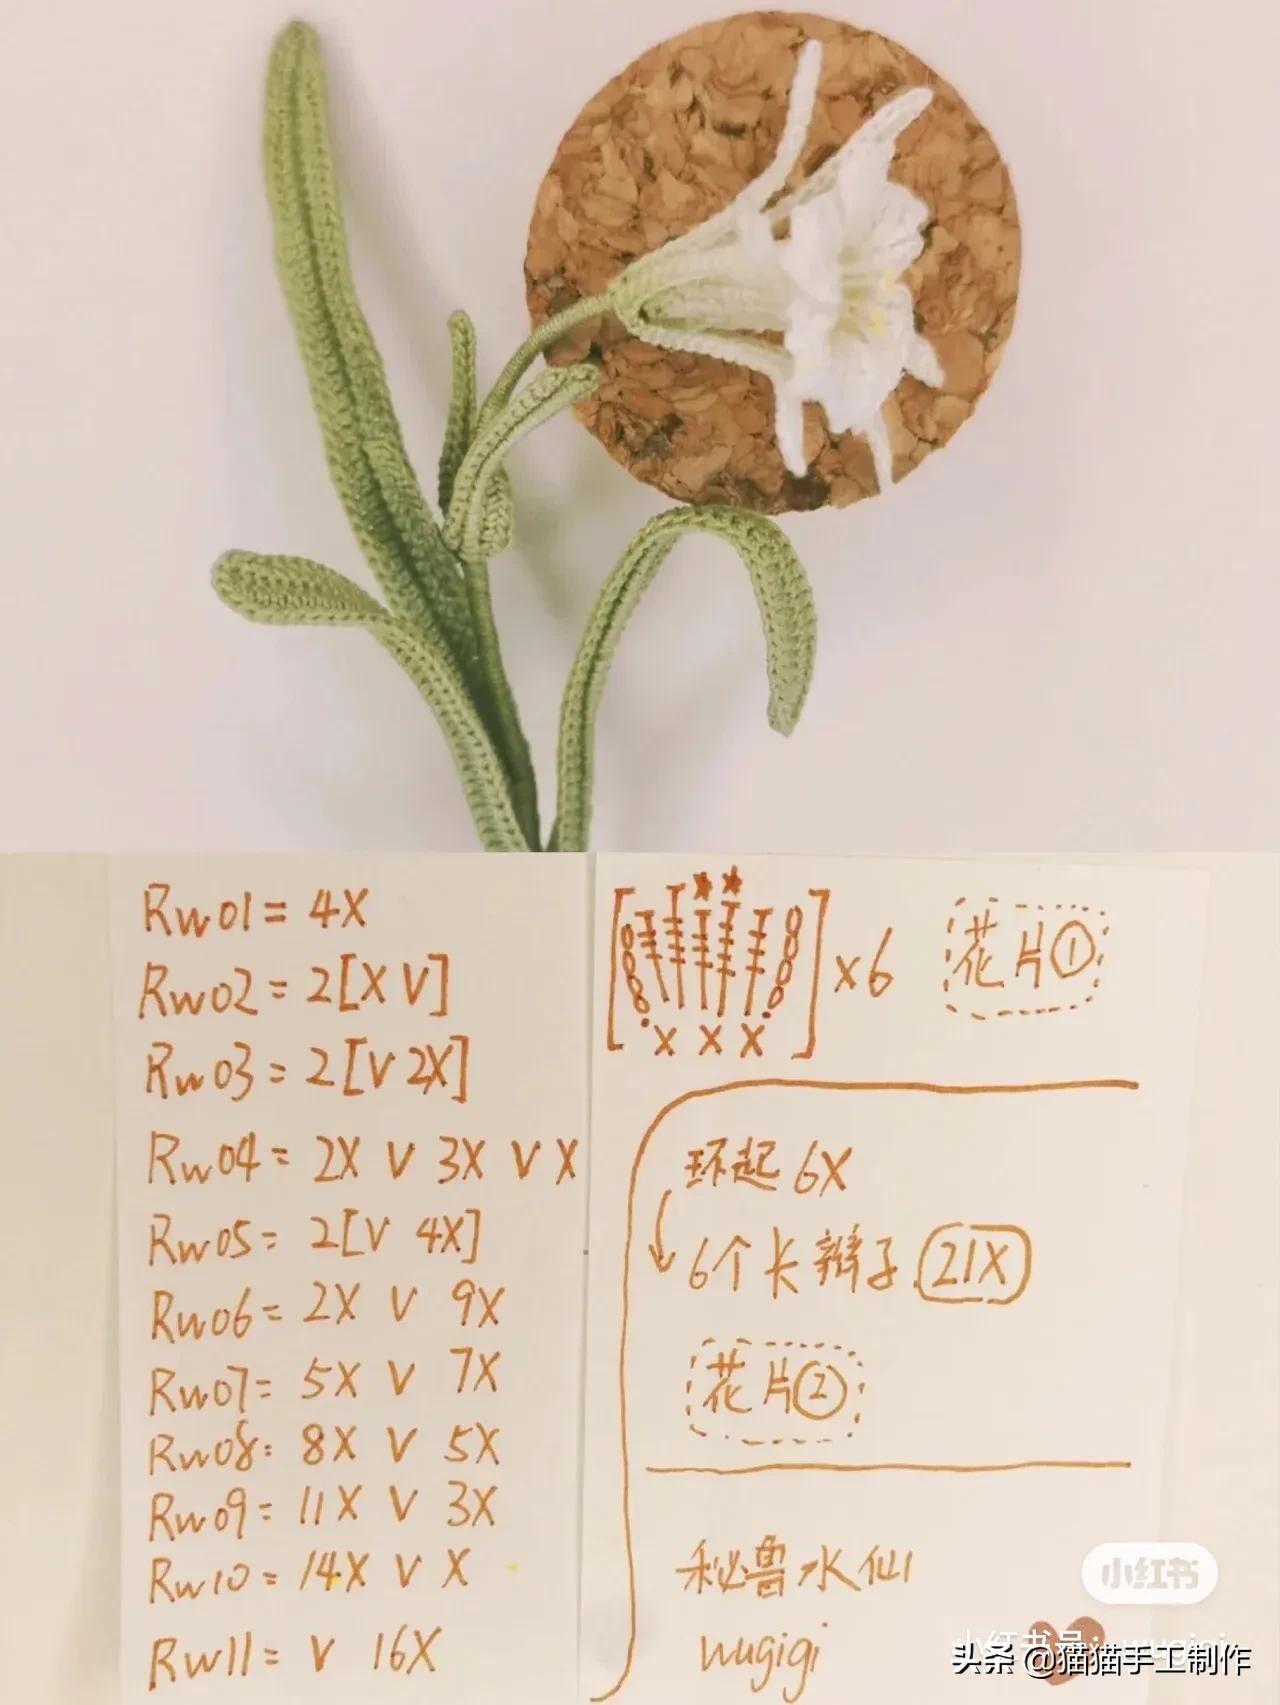 Rw01= 4X
Rw02= 2[X V]
Rw03= 2[V 2X]
Rw04= 2X V 3X V X
Rw05= 2[V 4X]
Rw06= 2X V 9X
Rw07= 5X V 7X
Rw08: 8X V 5X
Rw09= 11X V 3X
Rw10= 14X V X
Rw11= V 16X
X X X
x6
花片①
环起 6X
6个长辫子 21X
花片②
秘鲁水仙
wugigi
小红书
小红书号: wugigi
头条 @猫猫手工制作